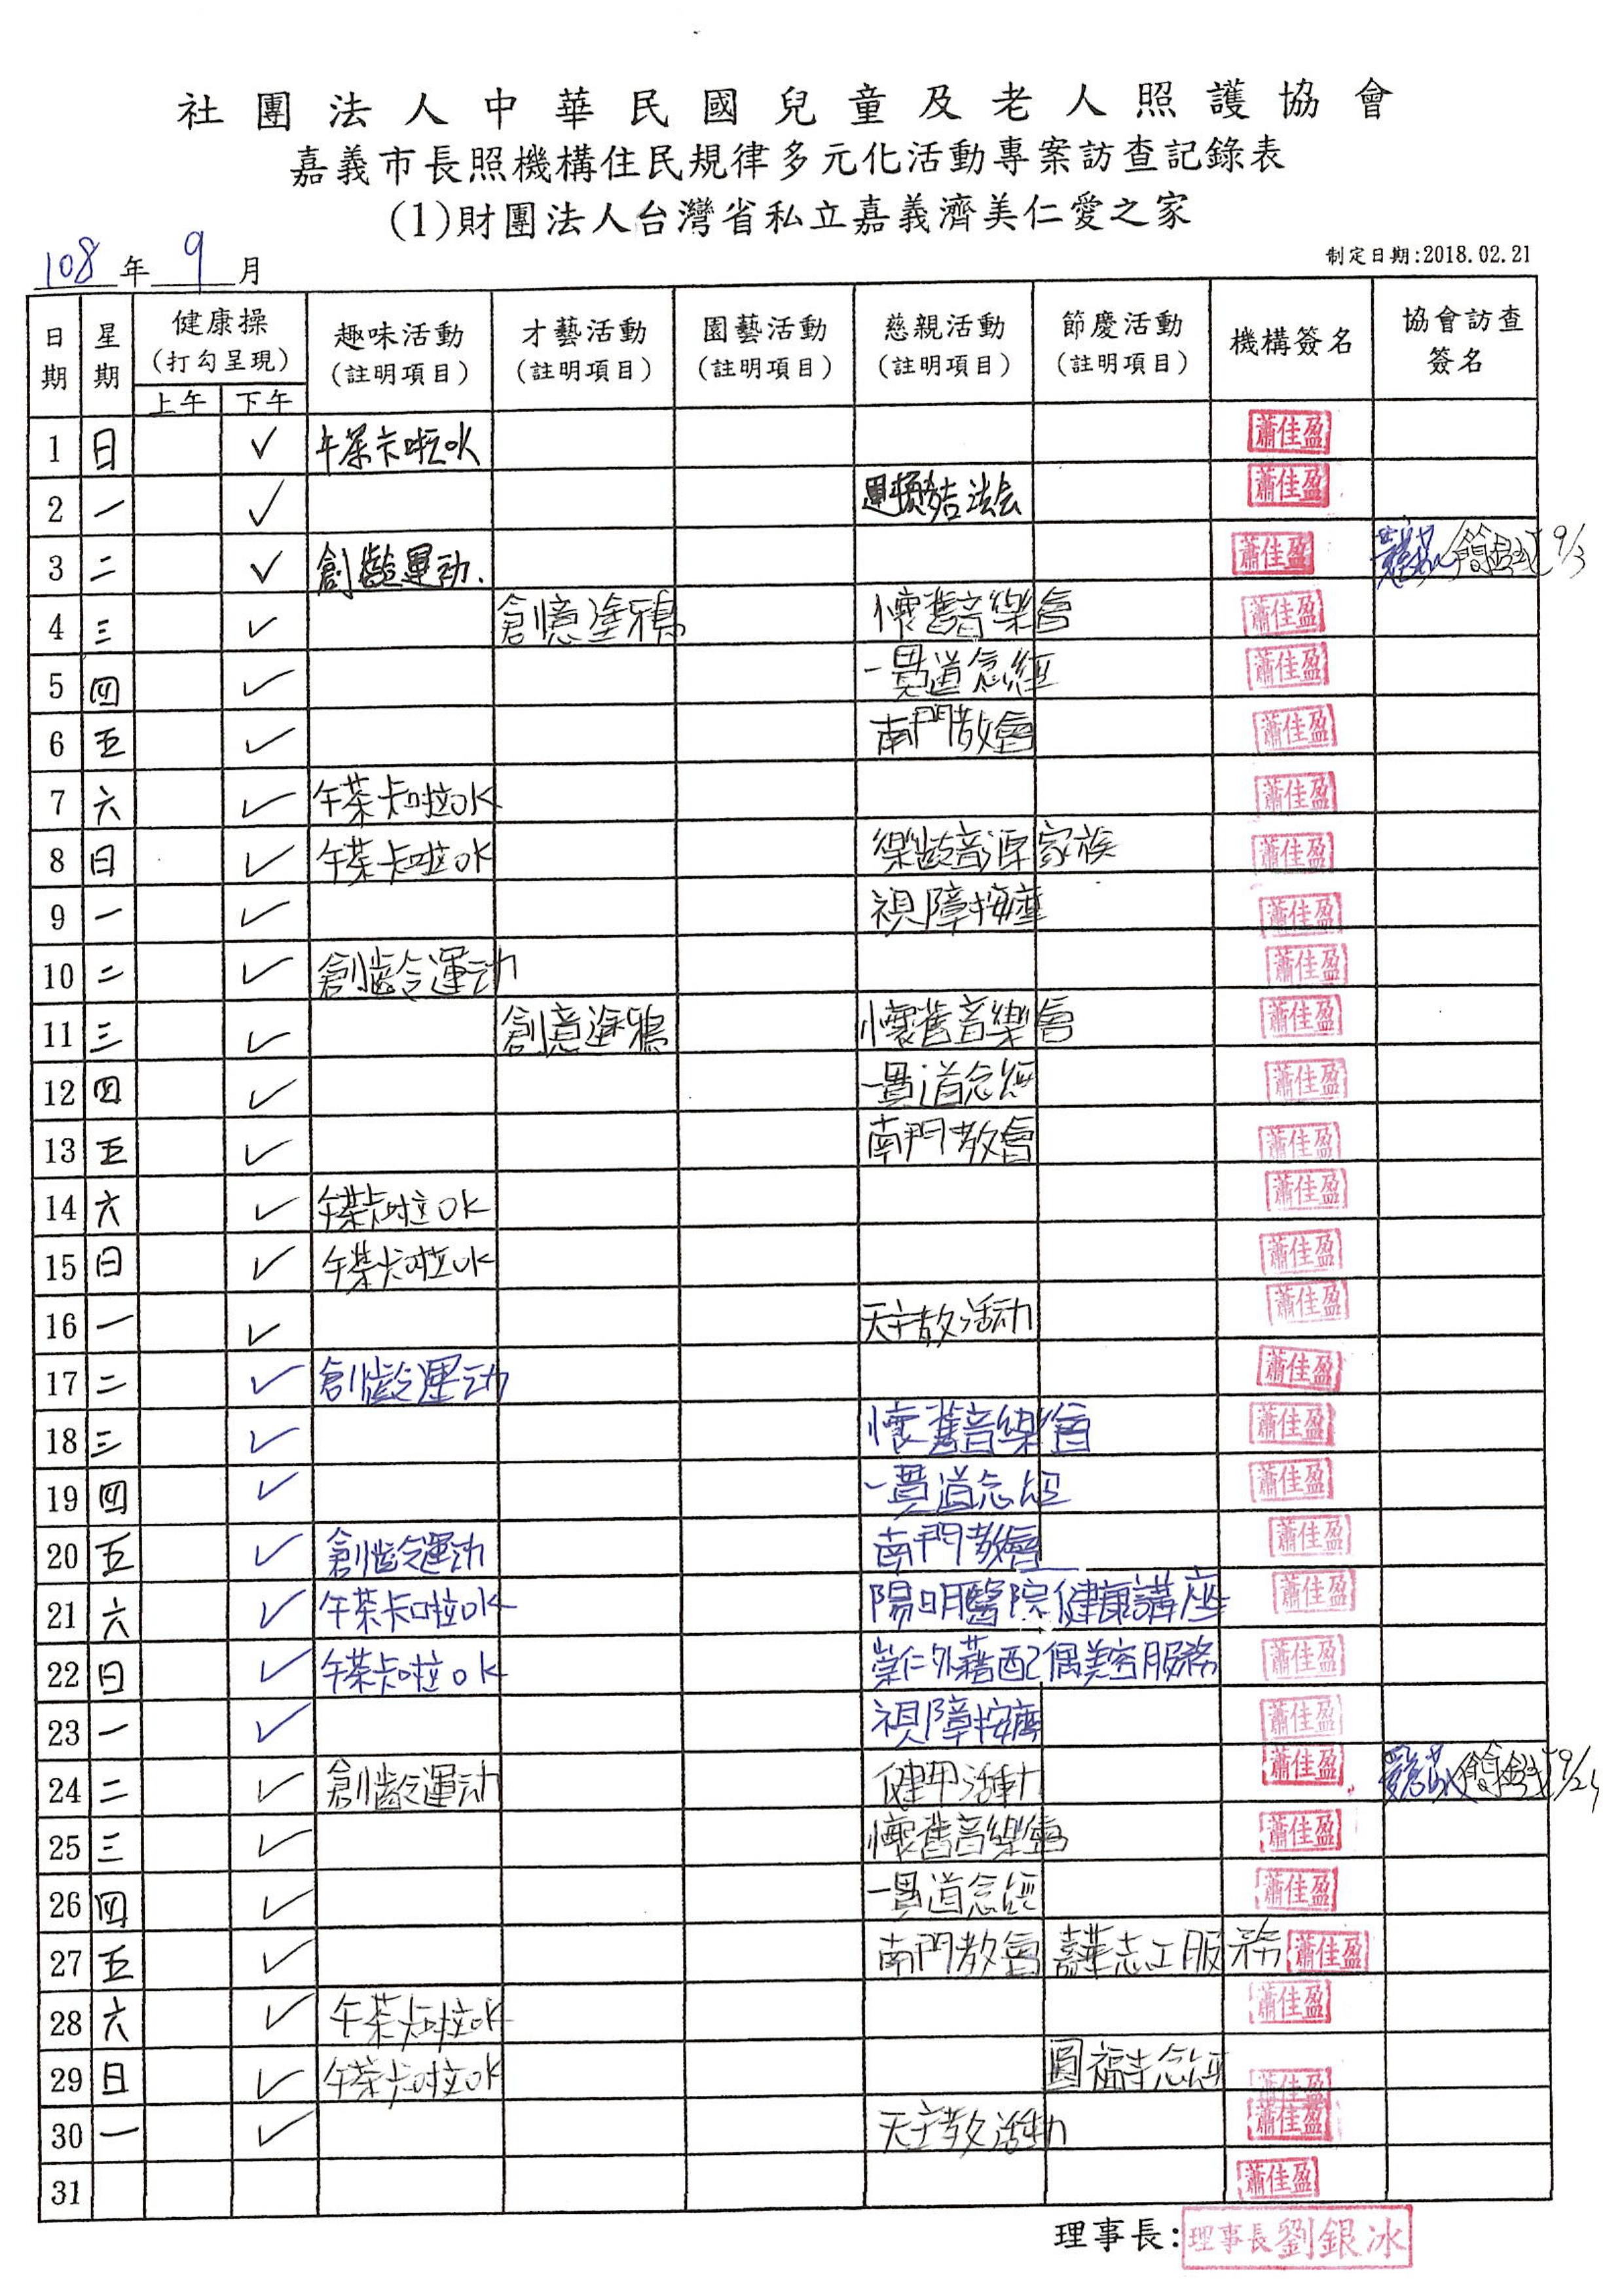 社團法人中華民國兒童及老人照護協會
嘉義市長照機構住民規律多元化活動專案訪查記錄表
(1)財團法人台灣省私立嘉義濟美仁愛之家
108年9月 制定日期:2018.02.21
日期 星期 健康操(打勾呈現) 上午 下午 趣味活動(註明項目) 才藝活動(註明項目) 園藝活動(註明項目) 慈親活動(註明項目) 節慶活動(註明項目) 機構簽名 協會訪查簽名
1 日 ✓ 午茶卡啦OK 蕭佳盈
2 一 ✓ 法会 蕭佳盈
3 二 ✓ 創齡運动. 蕭佳盈 9/3
4 三 ✓ 創意塗鴉 懷舊音樂會 蕭佳盈
5 四 ✓ 一貫道念經 蕭佳盈
6 五 ✓ 南門教會 蕭佳盈
7 六 ✓ 午茶卡啦OK 蕭佳盈
8 日 ✓ 午茶卡啦OK 樂齡音源家族 蕭佳盈
9 一 ✓ 視障按摩 蕭佳盈
10 二 ✓ 創齡運动 蕭佳盈
11 三 ✓ 創意塗鴉 懷舊音樂會 蕭佳盈
12 四 ✓ 一貫道念經 蕭佳盈
13 五 ✓ 南門教會 蕭佳盈
14 六 ✓ 午茶卡啦OK 蕭佳盈
15 日 ✓ 午茶卡啦OK 蕭佳盈
16 一 ✓ 天主教活动 蕭佳盈
17 二 ✓ 創齡運动 蕭佳盈
18 三 ✓ 懷舊音樂會 蕭佳盈
19 四 ✓ 一貫道念經 蕭佳盈
20 五 ✓ 創齡運动 南門教會 蕭佳盈
21 六 ✓ 午茶卡啦OK 陽明醫院健康講座 蕭佳盈
22 日 ✓ 午茶卡啦OK 崇仁外籍配偶美容服務 蕭佳盈
23 一 ✓ 視障按摩 蕭佳盈
24 二 ✓ 創齡運动 活動 蕭佳盈 9/24
25 三 ✓ 懷舊音樂會 蕭佳盈
26 四 ✓ 一貫道念經 蕭佳盈
27 五 ✓ 南門教會 志工服務 蕭佳盈
28 六 ✓ 午茶卡啦OK 蕭佳盈
29 日 ✓ 午茶卡啦OK 圓福寺念經 蕭佳盈
30 一 ✓ 天主教活動 蕭佳盈
31 蕭佳盈
理事長:理事長劉銀冰